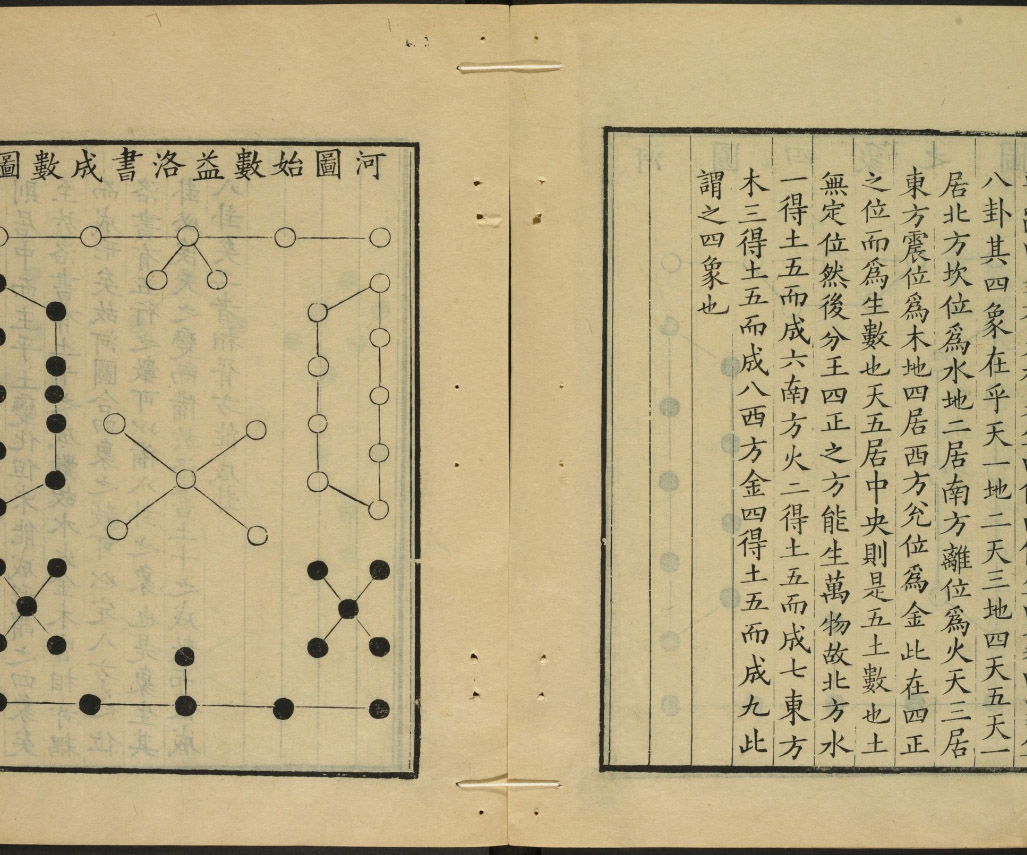 八卦其四象在乎天一地二天三地四天五天一
居北方坎位爲水地二居南方離位爲火天三居
東方震位爲木地四居西方兊位爲金此在四正
之位而爲生數也天五居中央則是五土數也土
無定位然後分王四正之方能生萬物故北方水
一得土五而成六南方火二得土五而成七東方
木三得土五而成八西方金四得土五而成九此
謂之四象也
河圖始數益洛書成數圖